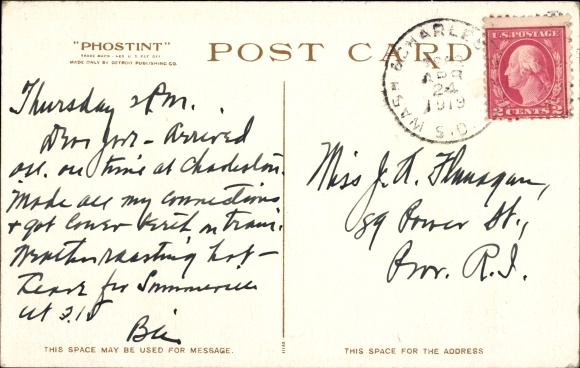 "PHOSTINT"
TRADE MARK - REG U S PAT OFF
MADE ONLY BY DETROIT PUBLISHING CO.
POST CARD
WASH & CHARLES
APR
24
1919
S.D.
2 CENTS 2
Thursday 2 P.M.
Dear - Arrived
on time at Charleston.
Made all my connections
+ got lower berth on train.
Weather roasting hot -
Leave for Summerville
at 3.15
Bill
Miss J. A. Flanagan,
89 Power St.,
Prov. R.I.
THIS SPACE MAY BE USED FOR MESSAGE.
THIS SPACE FOR THE ADDRESS